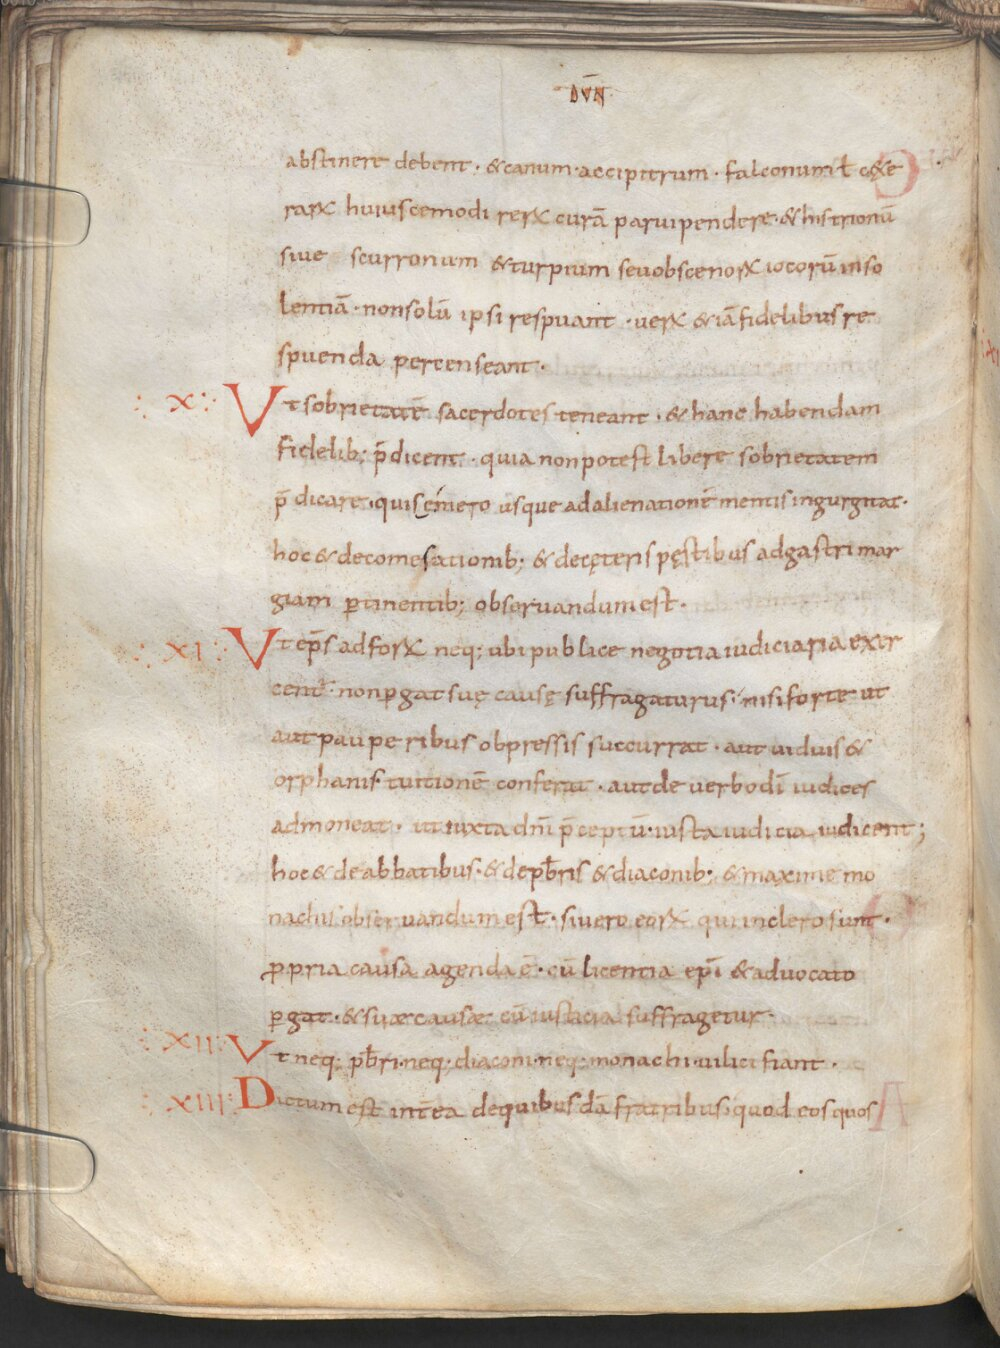 DV̄N
abstinere debent · & canum · accipitrum · falconum ł c&e
rarꝝ huiuscemodi rerꝝ curā paruipendere · & histrionū
siue scurronum & turpium seu obscenorꝝ iocorū inso
lentiā · non solū ipsi respuant · uerꝝ & iā fidelibus re
spuenda percenseant ·
· X · Vt sobrietatē sacerdotes teneant · & hanc habendam
fidelib; p̄dicent · quia non potest libere sobrietatem
p̄dicare · qui se mero usque ad alienationē mentis ingurgitat ·
hoc & de comesationib; & de cęteris pęstibus ad gastrimar
giam ꝑtinentib; obseruandum est ·
· XI · Vt ep̄s ad forꝝ neq; ubi publice negotia iudiciaria exer
cent · non ꝑgat suę causę suffragaturus · nisi forte ut
aut pauperibus obpressis succurrat · aut uiduis &
orphanis tuitionē conferat · aut de uerbo dī iudices
admoneat · ut iuxta dn̄i p̄ceptū · iusta iudicia iudicent;
hoc & de abbatibus · & de pƀris & diaconib; & maxime mo
nachis obseruandum est · si uero eorꝝ qui in clero sunt ·
ꝓpria causa agenda ē · cū licentia ep̄i & aduocato
ꝑgat · & suæ causæ cū iusticia suffragetur ·
· XII · Vt neq; pƀri · neq; diaconi · neq; monachi · uilici fiant ·
· XIII · Dictum est int̄ea de quibusdā fratribus · quod eos quos